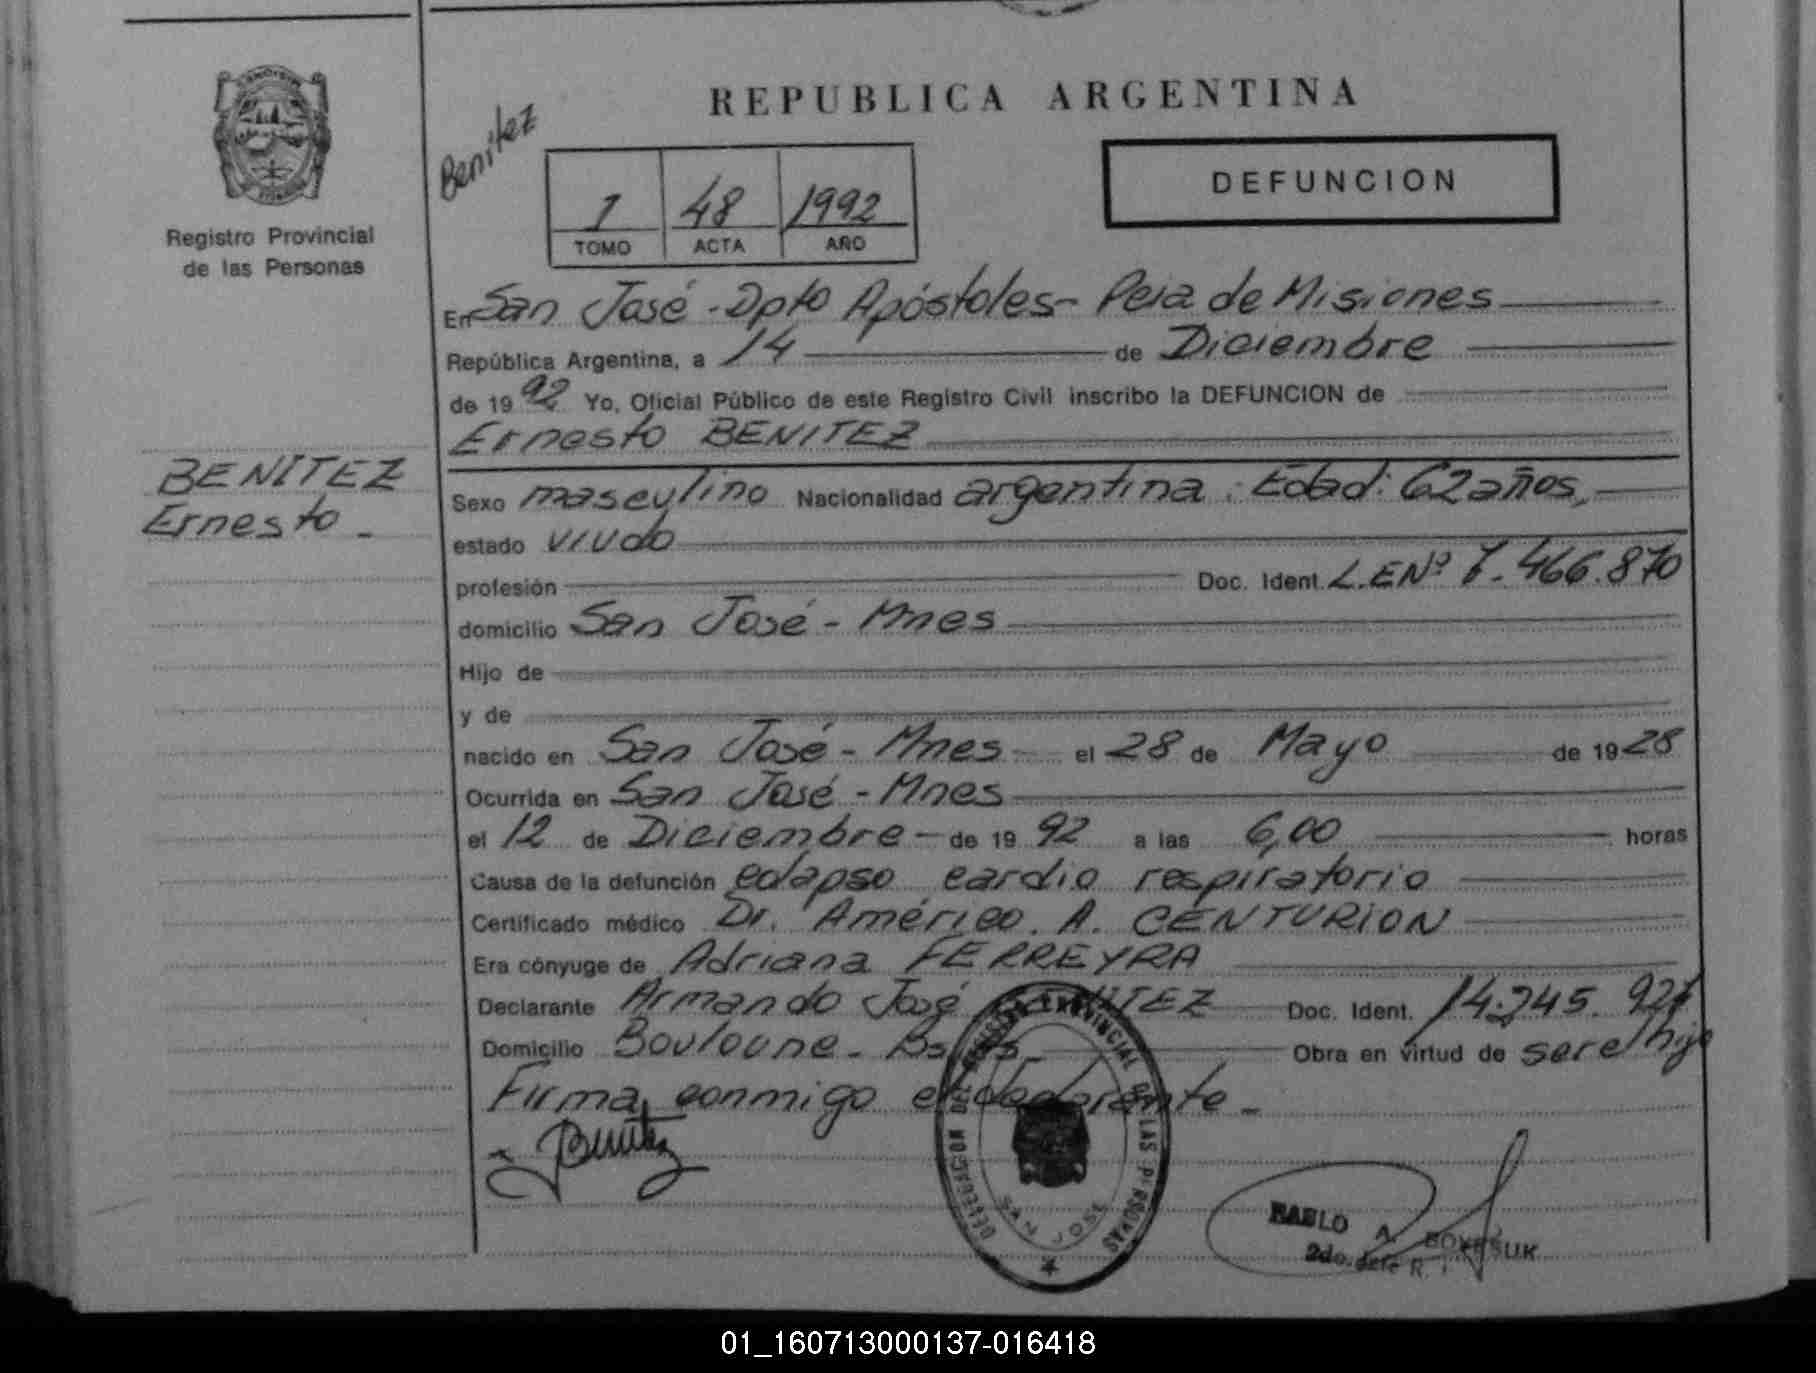 REPUBLICA ARGENTINA
Registro Provincial
de las Personas
Benitez
1 48 1992
TOMO ACTA AÑO
DEFUNCION
En San José - Dpto Apóstoles - Pcia de Misiones
República Argentina, a 14 de Diciembre
de 19 92 Yo, Oficial Público de este Registro Civil inscribo la DEFUNCION de
Ernesto BENITEZ
BENITEZ
Ernesto -
Sexo masculino Nacionalidad argentina. Edad: 62 años,
estado viudo
profesión Doc. Ident. L.E Nº 7.466.870
domicilio San José - Mnes
Hijo de
y de
nacido en San José - Mnes el 28 de Mayo de 19 28
Ocurrida en San José - Mnes
el 12 de Diciembre - de 19 92 a las 6,00 horas
Causa de la defunción colapso cardio respiratorio
Certificado médico Dr. Américo. A. CENTURION
Era cónyuge de Adriana FERREYRA
Declarante Armando José BENITEZ Doc. Ident. 14.245.
Domicilio Bouloune - Bs As - Obra en virtud de ser el hijo
Firma, conmigo el declarante -
Benitez
DELEGACION DEL REGISTRO PROVINCIAL DE LAS PERSONAS
SAN JOSE
PABLO A.
2do. Jefe R.
01_160713000137-016418